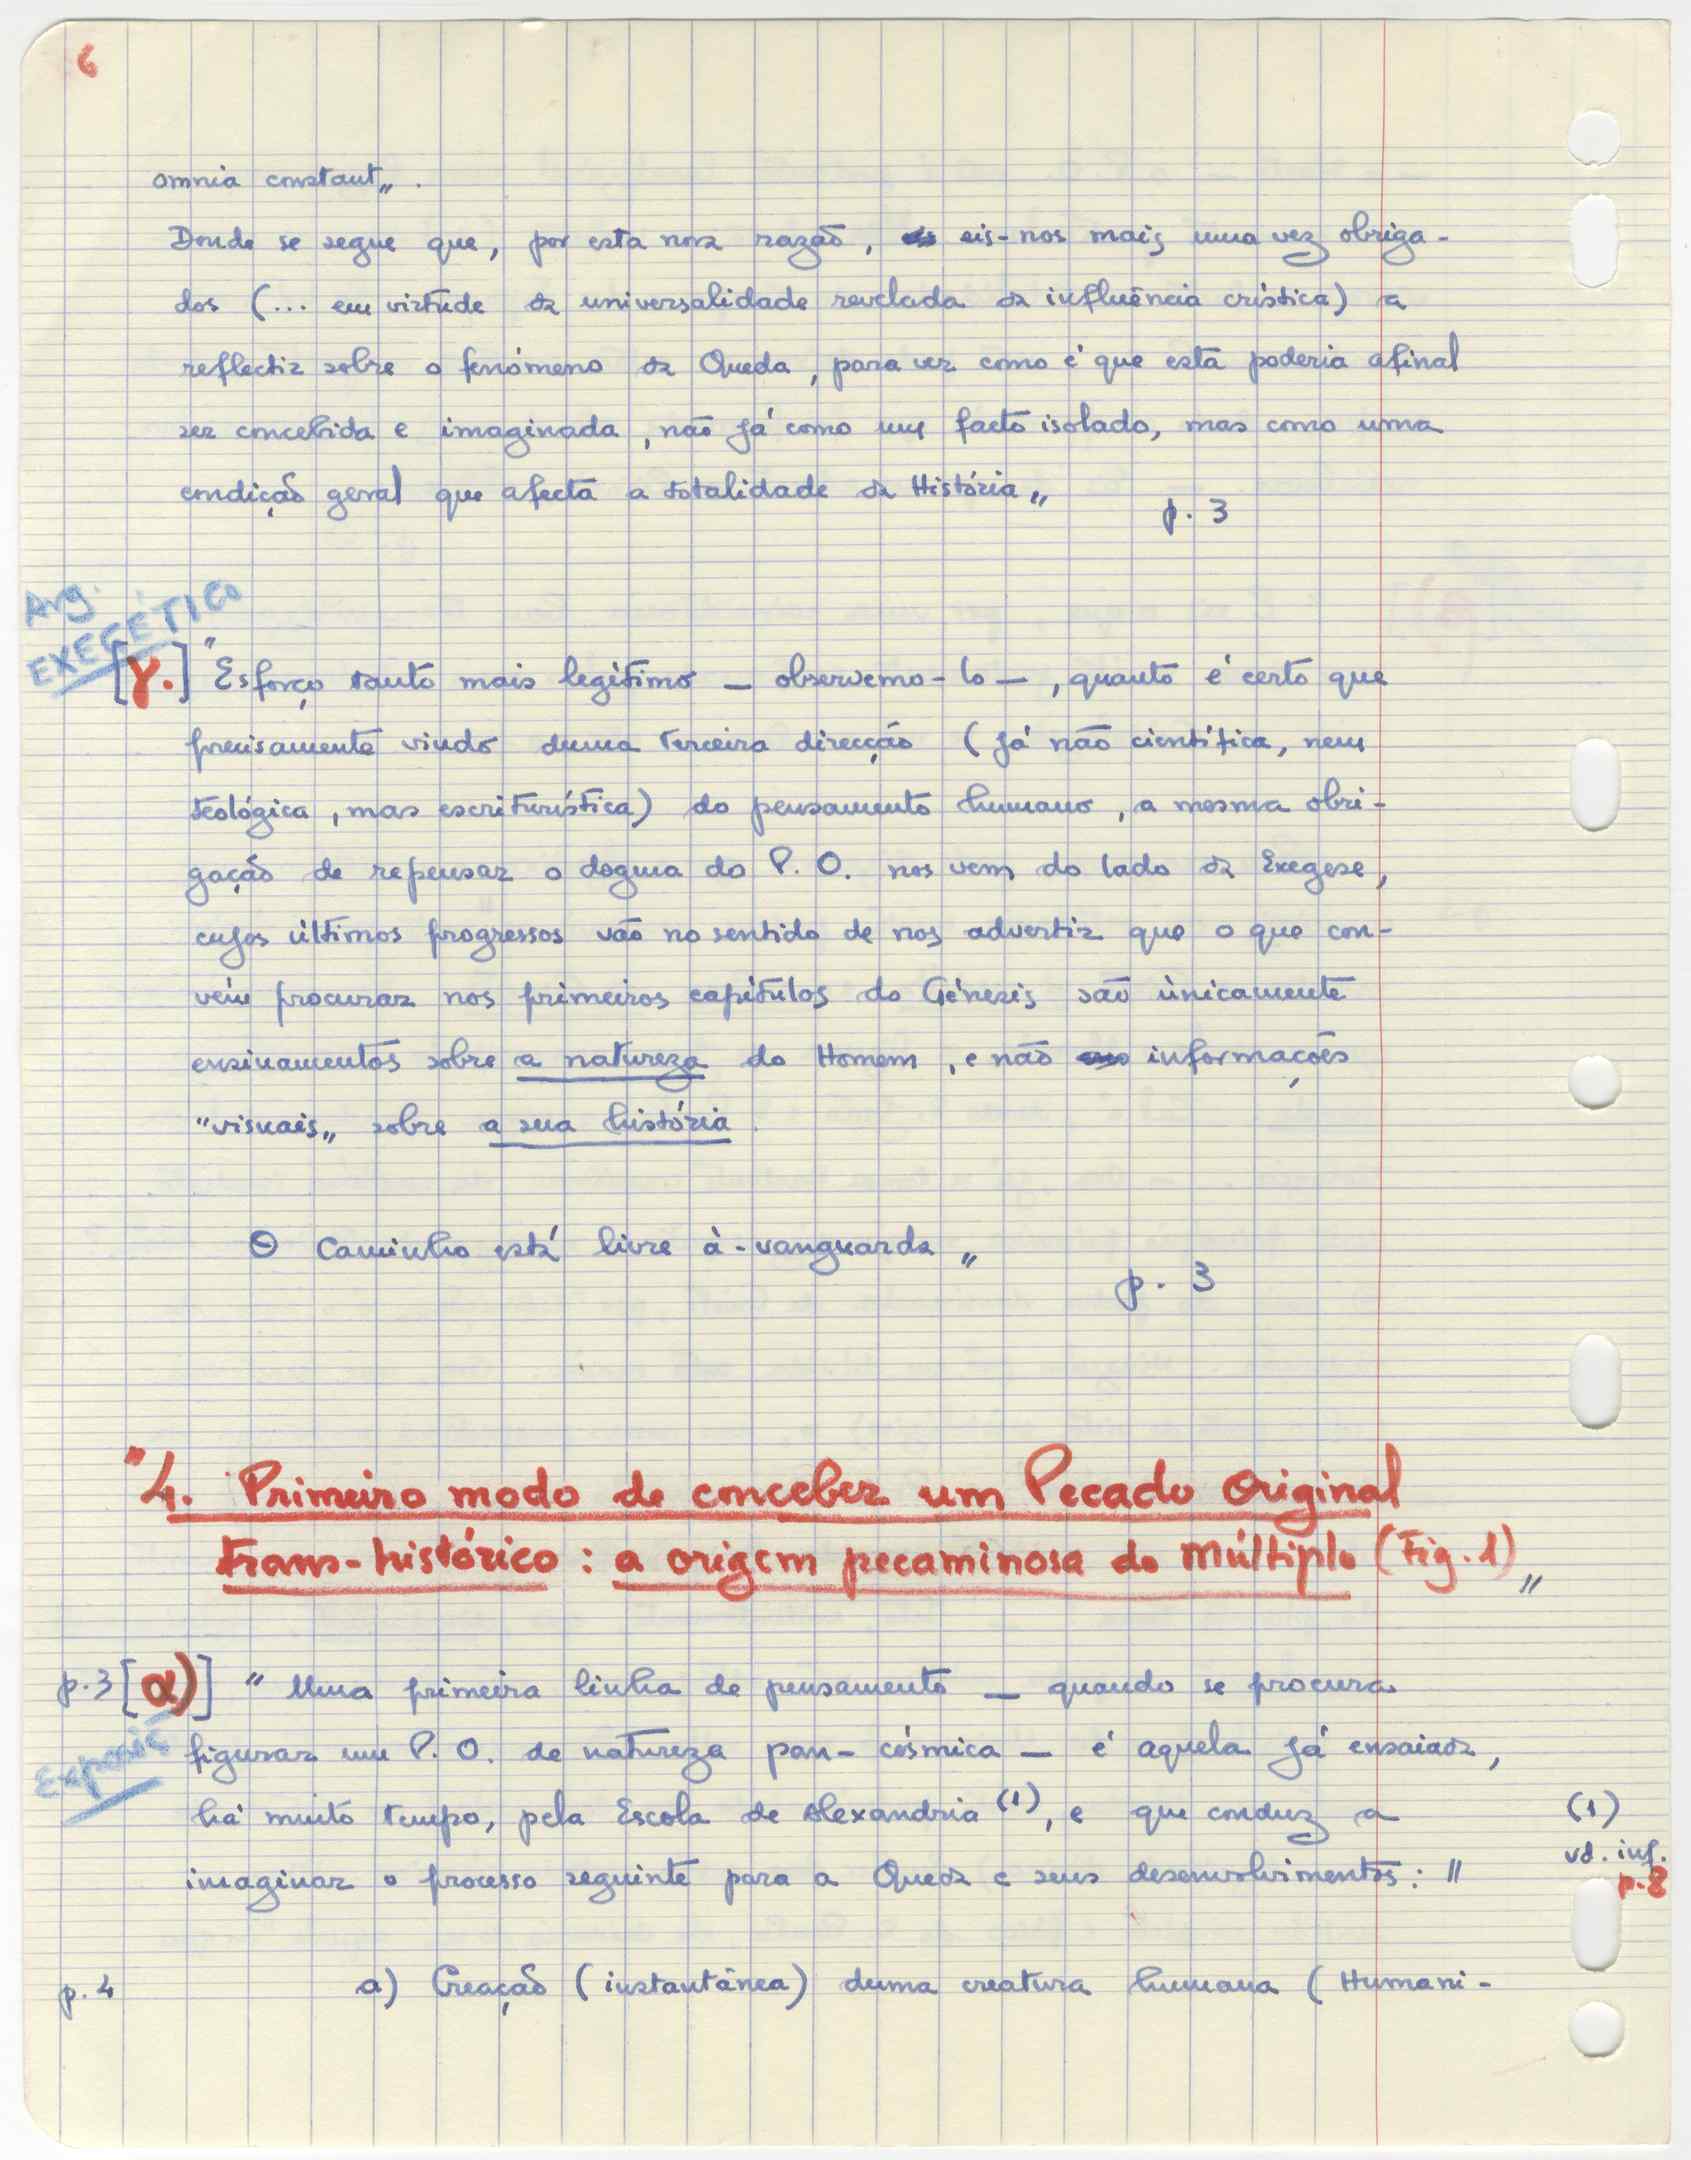 6
omnia constant„.
Donde se segue que, por esta nova razão, eis-nos mais uma vez obriga-
dos (... em virtude da universalidade revelada da influência crística) a
reflectir sobre o fenómeno da Queda, para ver como é que esta poderia afinal
ser concebida e imaginada, não já como um facto isolado, mas como uma
condição geral que afecta a totalidade da História„
p. 3
Arg.
EXEGÉTICO
[γ.] "Esforço tanto mais legítimo — observemo-lo —, quanto é certo que
precisamente vindo duma terceira direcção (já não científica, nem
teológica, mas escriturística) do pensamento humano, a mesma obri-
gação de repensar o dogma do P. O. nos vem do lado da Exegese,
cujos últimos progressos vão no sentido de nos advertir que o que con-
vém procurar nos primeiros capítulos do Génesis são ùnicamente
ensinamentos sobre a natureza do Homem, e não informações
"visuais„ sobre a sua história.
O Caminho está livre à-vanguarda„
p. 3
"4. Primeiro modo de conceber um Pecado Original
trans-histórico : a origem pecaminosa do Múltiplo (Fig. 1)„
p. 3 [α)] "Uma primeira linha de pensamento — quando se procura
figurar um P. O. de natureza pan-cósmica — é aquela já ensaiada,
há muito tempo, pela Escola de Alexandria (1), e que conduz a
imaginar o processo seguinte para a Queda e seus desenvolvimentos: "
(1)
vd. inf.
p. 8
p. 4 a) Creação (instantânea) duma creatura humana (Humani-